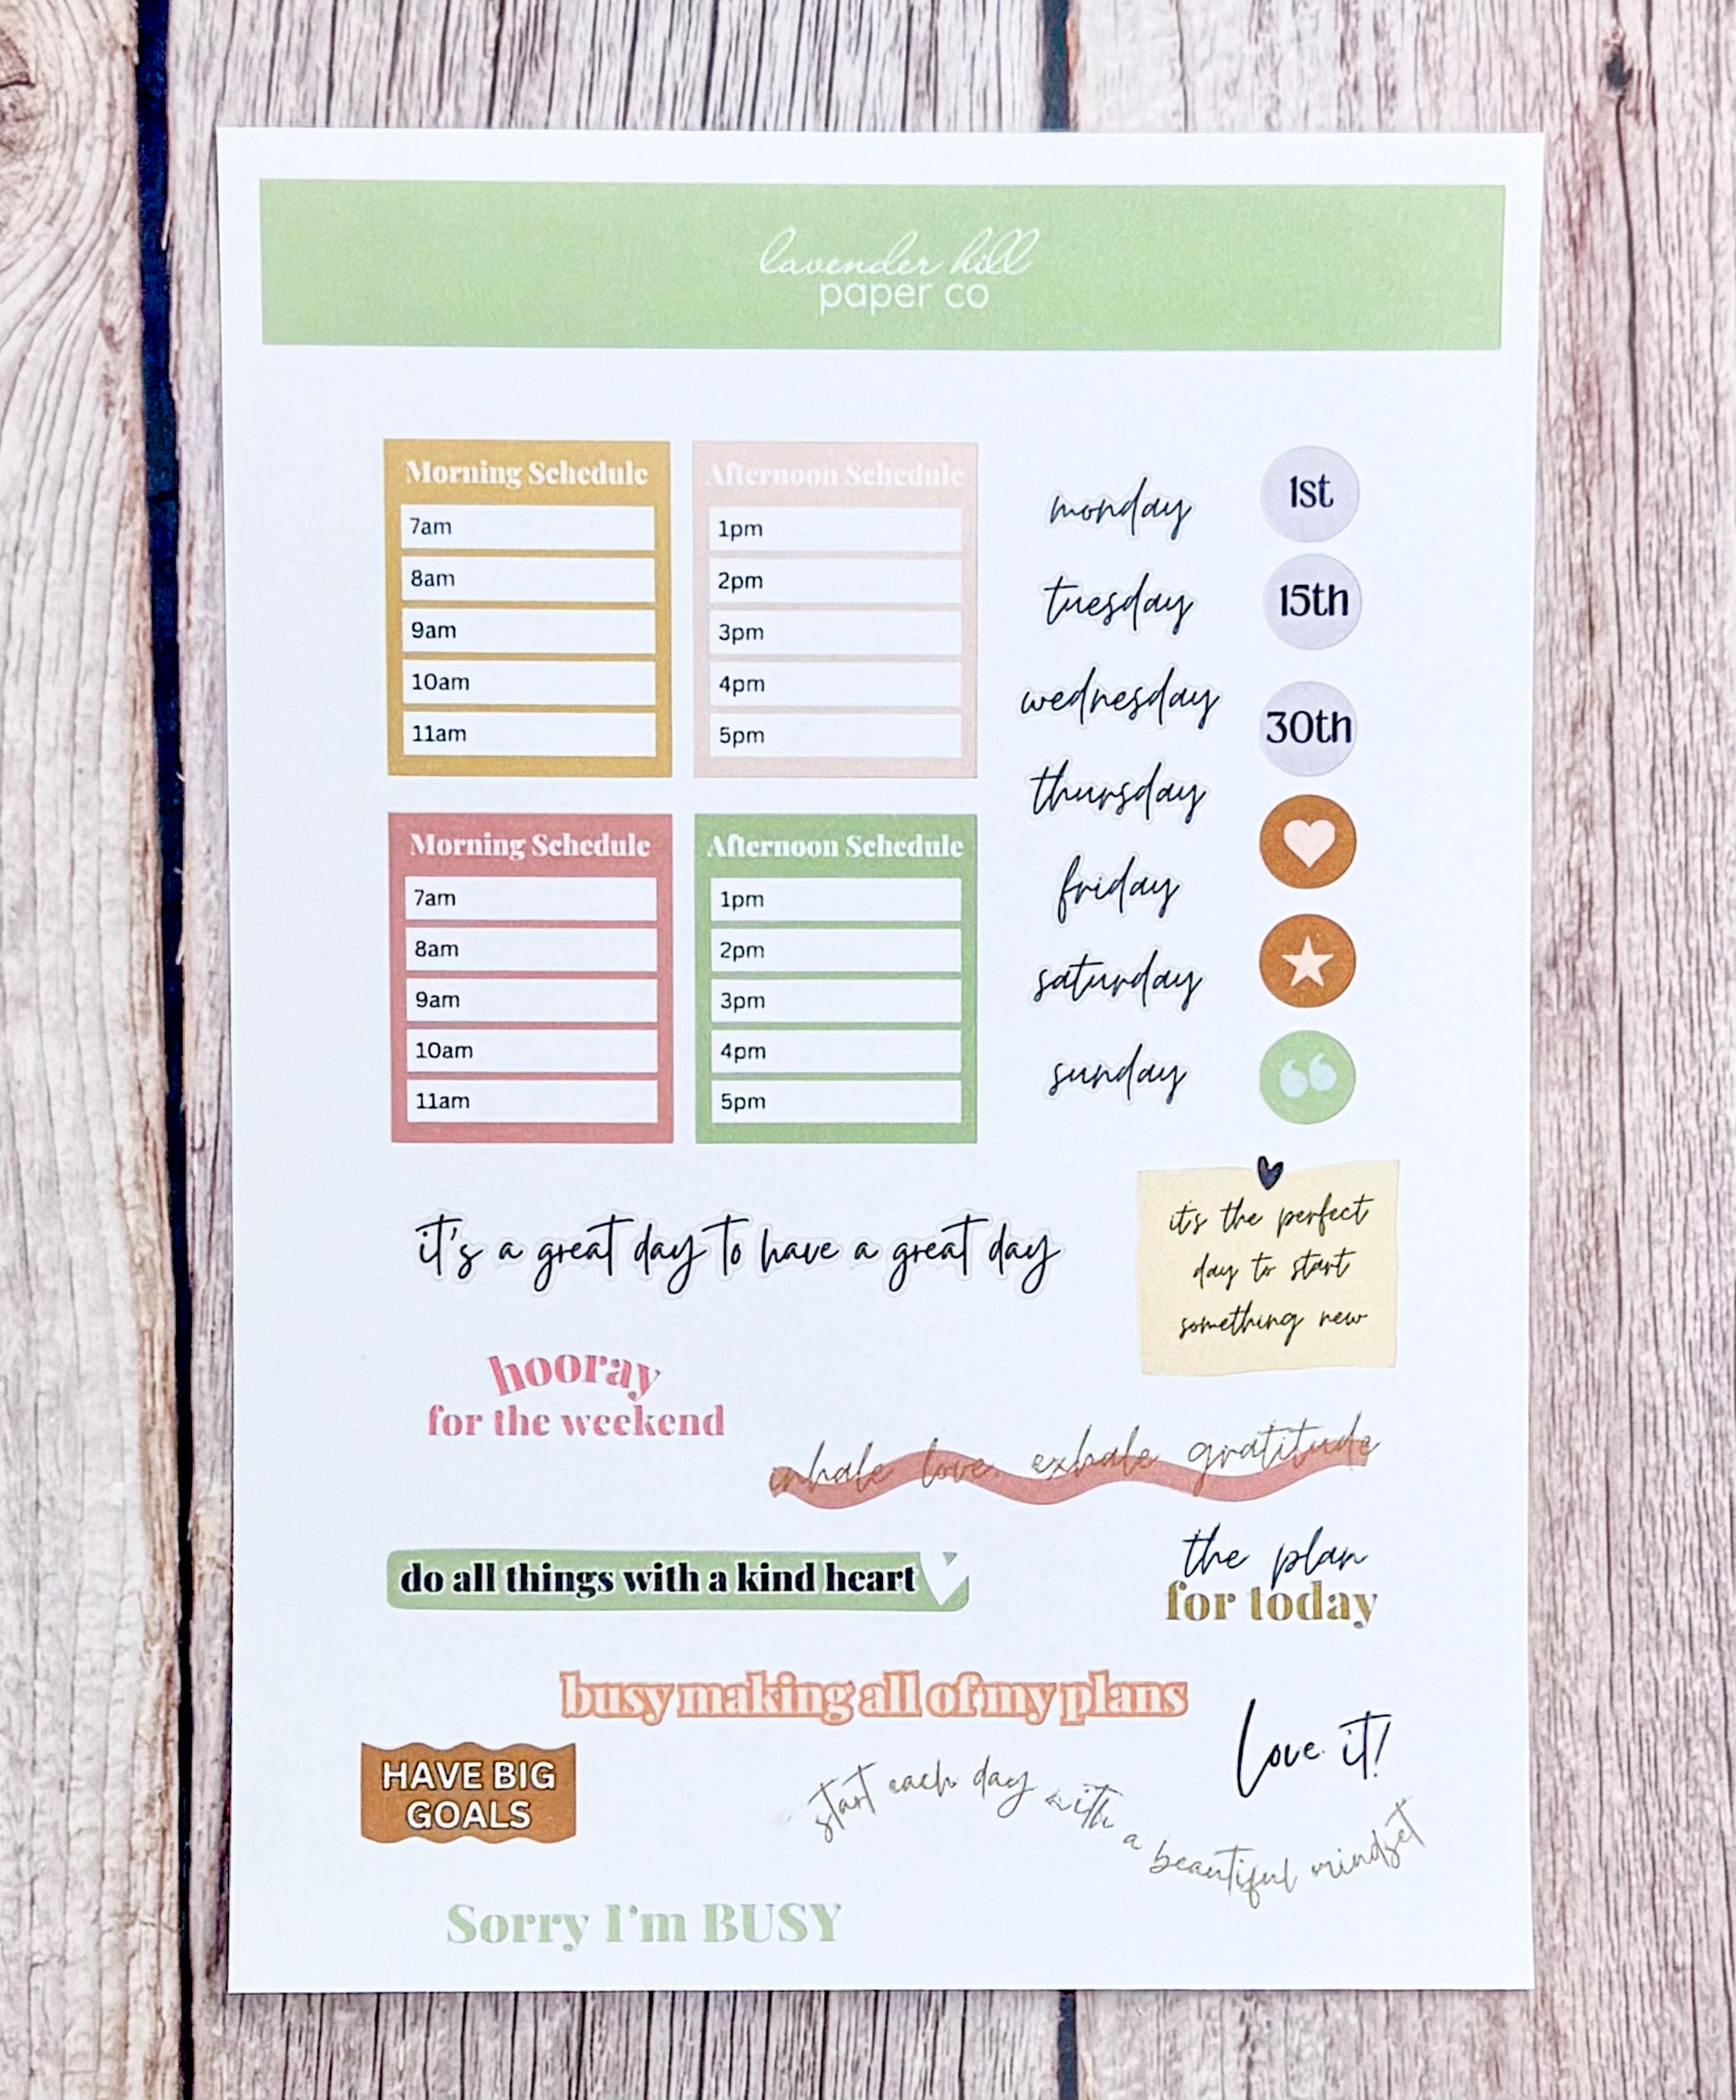 lavender hill
paper co
Morning Schedule
7am
8am
9am
10am
11am
Afternoon Schedule
1pm
2pm
3pm
4pm
5pm
Morning Schedule
7am
8am
9am
10am
11am
Afternoon Schedule
1pm
2pm
3pm
4pm
5pm
monday
tuesday
wednesday
thursday
friday
saturday
sunday
1st
15th
30th
it's a great day to have a great day
it's the perfect
day to start
something new
hooray
for the weekend
inhale love exhale gratitude
do all things with a kind heart
the plan
for today
busy making all of my plans
Love it!
HAVE BIG
GOALS
start each day with a beautiful mindset
Sorry I'm BUSY